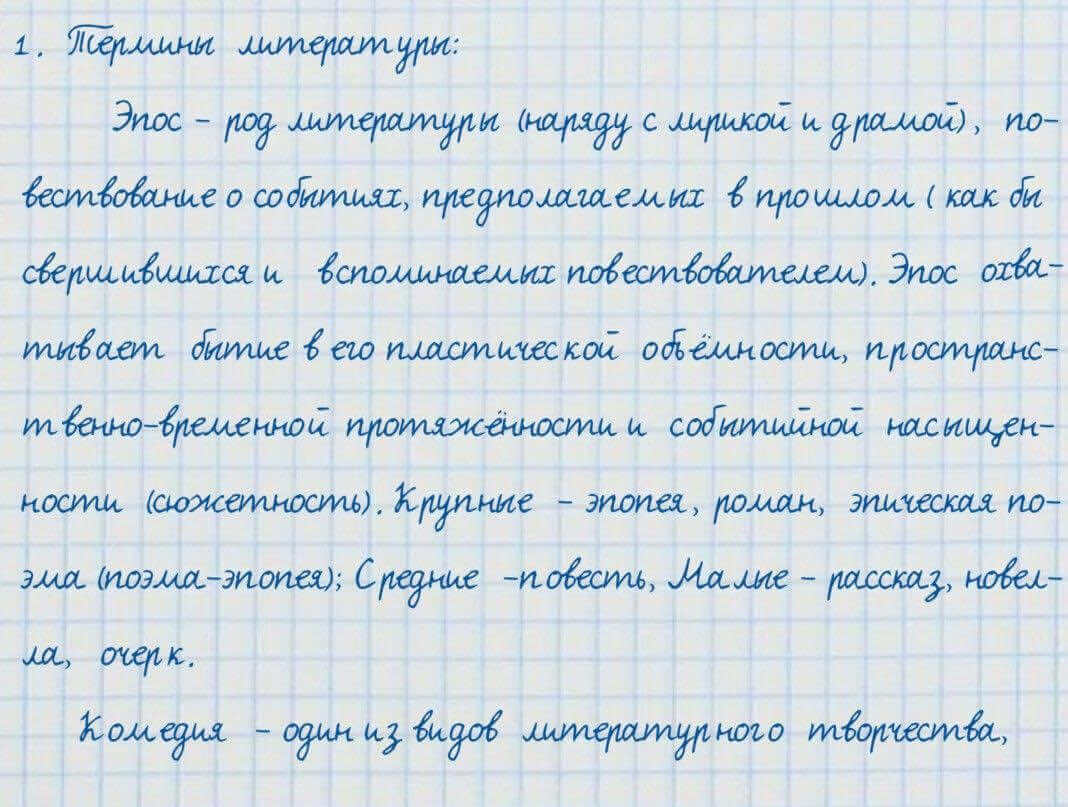 1. Термины литературы:
Эпос – род литературы (наряду с лирикой и драмой), по-
вествование о событиях, предполагаемых в прошлом (как бы
свершившихся и вспоминаемых повествователем). Эпос охва-
тывает бытие в его пластической объёмности, пространс-
твенно-временной протяжённости и событийной насыщен-
ности (сюжетность). Крупные – эпопея, роман, эпическая по-
эма (поэма-эпопея); Средние -повесть, Малые – рассказ, новел-
ла, очерк.
Комедия – один из видов литературного творчества,